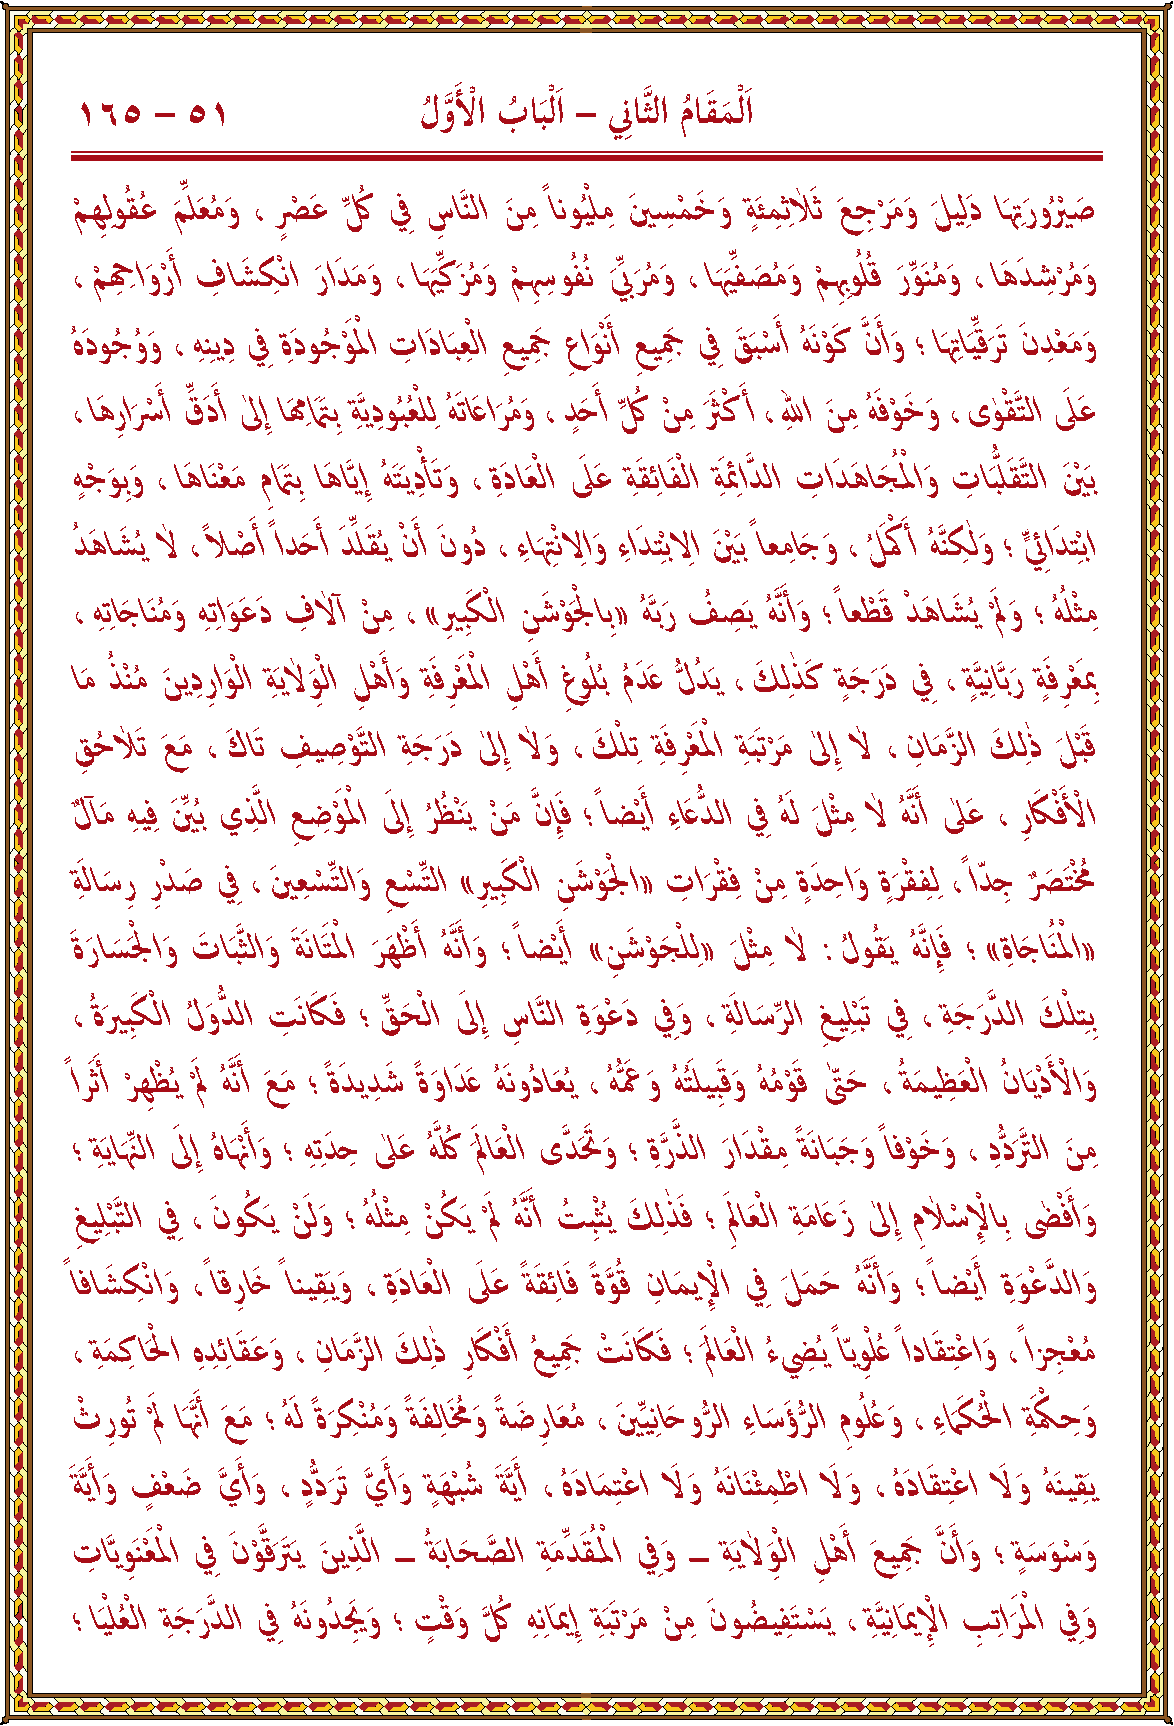 اَلْمَقَامُ الثَّانِي – اَلْبَابُ الْأَوَّلُ ٥١ – ١٦٥
صَيْرُورَتِهَا دَلِيلَ وَمَرْجِعَ ثَلاٰثِمِئَةٍ وَخَمْسِينَ مِلْيُوناً مِنَ النَّاسِ فِي كُلِّ عَصْرٍ ، وَمُعَلِّمَ عُقُولِهِمْ
وَمُرْشِدَهَا ، وَمُنَوِّرَ قُلُوبِهِمْ وَمُصَفِّيَهَا ، وَمُرَبِّيَ نُفُوسِهِمْ وَمُزَكِّيَهَا ، وَمَدَارَ انْكِشَافِ أَرْوَاحِهِمْ ،
وَمَعْدِنَ تَرَقِّيَاتِهَا ؛ وَأَنَّ كَوْنَهُ أَسْبَقَ فِي جَمِيعِ أَنْوَاعِ جَمِيعِ الْعِبَادَاتِ الْمَوْجُودَةِ فِي دِينِهِ ، وَوُجُودَهُ
عَلَى التَّقْوٰى ، وَخَوْفَهُ مِنَ اللهِ ، أَكْثَرَ مِنْ كُلِّ أَحَدٍ ، وَمُرَاعَاتَهُ لِلْعُبُودِيَّةِ بِتَمَامِهَا إِلىٰ أَدَقِّ أَسْرَارِهَا ،
بَيْنَ التَّقَلُّبَاتِ وَالْمُجَاهَدَاتِ الدَّائِمَةِ الْفَائِقَةِ عَلَى الْعَادَةِ ، وَتَأْدِيَتَهُ إِيَّاهَا بِتَمَامِ مَعْنَاهَا ، وَبِوَجْهٍ
ابْتِدَائِيٍّ ؛ وَلٰكِنَّهُ أَكْمَلُ ، وَجَامِعاً بَيْنَ الِابْتِدَاءِ وَالِانْتِهَاءِ ، دُونَ أَنْ يُقَلِّدَ أَحَداً أَصْلاً ، لاٰ يُشَاهَدُ
مِثْلُهُ ؛ وَلَمْ يُشَاهَدْ قَطْعاً ؛ وَأَنَّهُ يَصِفُ رَبَّهُ «بِالْجَوْشَنِ الْكَبِيرِ» ، مِنْ آلاٰفِ دَعَوَاتِهِ وَمُنَاجَاتِهِ ،
بِمَعْرِفَةٍ رَبَّانِيَّةٍ ، فِي دَرَجَةٍ كَذٰلِكَ ، يَدُلُّ عَدَمُ بُلُوغِ أَهْلِ الْمَعْرِفَةِ وَأَهْلِ الْوِلاٰيَةِ الْوَارِدِينَ مُنْذُ مَا
قَبْلَ ذٰلِكَ الزَّمَانِ ، لاٰ إِلىٰ مَرْتَبَةِ الْمَعْرِفَةِ تِلْكَ ، وَلاٰ إِلىٰ دَرَجَةِ التَّوْصِيفِ تَاكَ ، مَعَ تَلاٰحُقِ
الْأَفْكَارِ ، عَلىٰ أَنَّهُ لاٰ مِثْلَ لَهُ فِي الدُّعَاءِ أَيْضاً ؛ فَإِنَّ مَنْ يَنْظُرُ إِلَى الْمَوْضِعِ الَّذِي بُيِّنَ فِيهِ مَآلٌ
مُخْتَصَرٌ جِدّاً ، لِفِقْرَةٍ وَاحِدَةٍ مِنْ فِقْرَاتِ «الْجَوْشَنِ الْكَبِيرِ» التِّسْعِ وَالتِّسْعِينَ ، فِي صَدْرِ رِسَالَةِ
«الْمُنَاجَاةِ» ؛ فَإِنَّهُ يَقُولُ : لاٰ مِثْلَ «لِلْجَوْشَنِ» أَيْضاً ؛ وَأَنَّهُ أَظْهَرَ الْمَتَانَةَ وَالثَّبَاتَ وَالْجَسَارَةَ
بِتِلْكَ الدَّرَجَةِ ، فِي تَبْلِيغِ الرِّسَالَةِ ، وَفِي دَعْوَةِ النَّاسِ إِلَى الْحَقِّ ؛ فَكَانَتِ الدُّوَلُ الْكَبِيرَةُ ،
وَالْأَدْيَانُ الْعَظِيمَةُ ، حَتّٰى قَوْمُهُ وَقَبِيلَتُهُ وَعَمُّهُ ، يُعَادُونَهُ عَدَاوَةً شَدِيدَةً ؛ مَعَ أَنَّهُ لَمْ يُظْهِرْ أَثَراً
مِنَ التَّرَدُّدِ ، وَخَوْفاً وَجَبَانَةً مِقْدَارَ الذَّرَّةِ ؛ وَتَحَدَّى الْعَالَمَ كُلَّهُ عَلىٰ حِدَتِهِ ؛ وَأَنْهَاهُ إِلَى النِّهَايَةِ ؛
وَأَفْضٰى بِالْإِسْلاٰمِ إِلىٰ زَعَامَةِ الْعَالَمِ ؛ فَذٰلِكَ يُثْبِتُ أَنَّهُ لَمْ يَكُنْ مِثْلُهُ ؛ وَلَنْ يَكُونَ ، فِي التَّبْلِيغِ
وَالدَّعْوَةِ أَيْضاً ؛ وَأَنَّهُ حَمَلَ فِي الْإِيمَانِ قُوَّةً فَائِقَةً عَلَى الْعَادَةِ ، وَيَقِيناً خَارِقاً ، وَانْكِشَافاً
مُعْجِزاً ، وَاعْتِقَاداً عُلْوِيّاً يُضِيءُ الْعَالَمَ ؛ فَكَانَتْ جَمِيعُ أَفْكَارِ ذٰلِكَ الزَّمَانِ ، وَعَقَائِدِهِ الْحَاكِمَةِ ،
وَحِكْمَةِ الْحُكَمَاءِ ، وَعُلُومِ الرُّؤَسَاءِ الرُّوحَانِيِّينَ ، مُعَارِضَةً وَمُخَالِفَةً وَمُنْكِرَةً لَهُ ؛ مَعَ أَنَّهَا لَمْ تُورِثْ
يَقِينَهُ وَلَا اعْتِقَادَهُ ، وَلَا اطْمِئْنَانَهُ وَلَا اعْتِمَادَهُ ، أَيَّةَ شُبْهَةٍ وَأَيَّ تَرَدُّدٍ ، وَأَيَّ ضَعْفٍ وَأَيَّةَ
وَسْوَسَةٍ ؛ وَأَنَّ جَمِيعَ أَهْلِ الْوِلاٰيَةِ – وَفِي الْمُقَدِّمَةِ الصَّحَابَةُ – الَّذِينَ يَتَرَقَّوْنَ فِي الْمَعْنَوِيَّاتِ
وَفِي الْمَرَاتِبِ الْإِيمَانِيَّةِ ، يَسْتَفِيضُونَ مِنْ مَرْتَبَةِ إِيمَانِهِ كُلَّ وَقْتٍ ؛ وَيَجِدُونَهُ فِي الدَّرَجَةِ الْعُلْيَا ؛